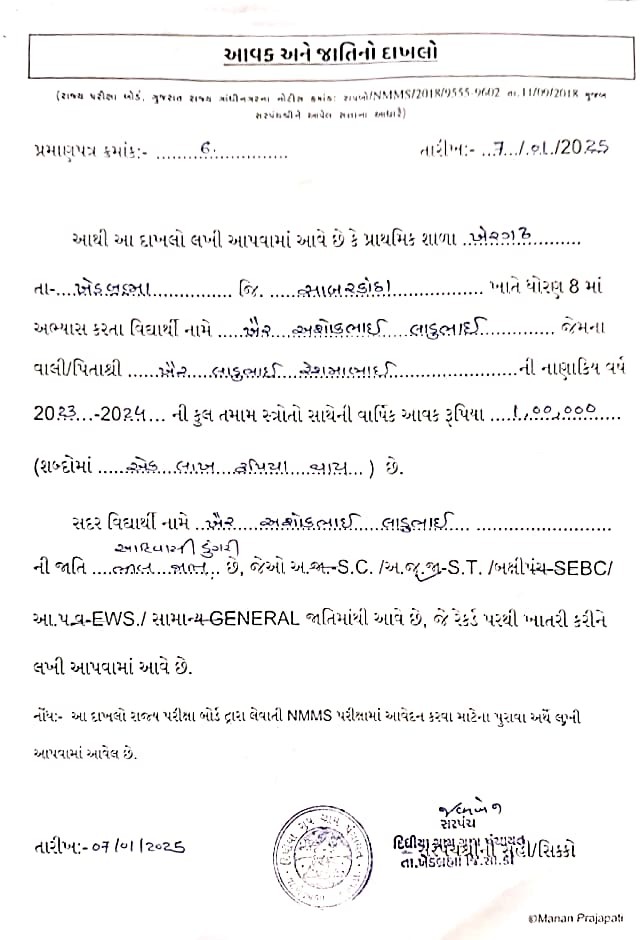 આવક અને જાતિનો દાખલો
(રાજ્ય પરીક્ષા બોર્ડ, ગુજરાત રાજ્ય ગાંધીનગરના નોટીસ ક્રમાંક: રાપબો/NMMS/2018/9555-9602 તા.11/09/2018 મુજબ
સરપંચશ્રીને આપેલ સત્તાના આધારે)
પ્રમાણપત્ર ક્રમાંક:- ......6.............. તારીખ:- ..7../.01./2025
આથી આ દાખલો લખી આપવામાં આવે છે કે પ્રાથમિક શાળા ..ખેરગઢ..........
તા-...ખેડબ્રહ્મા.............. જિ. ....સાબરકાંઠા.................. ખાતે ધોરણ 8 માં
અભ્યાસ કરતા વિદ્યાર્થી નામે ....ખૈર અશોકભાઈ લાડુભાઈ............ જેમના
વાલી/પિતાશ્રી .....ખૈર લાડુભાઈ રેશમાભાઈ......................ની નાણાકિય વર્ષ
2023...-2024... ની કુલ તમામ સ્ત્રોતો સાથેની વાર્ષિક આવક રૂપિયા ....1,00,000.....
(શબ્દોમાં ......એક લાખ રૂપિયા ... ) છે.
સદર વિદ્યાર્થી નામે ..ખૈર અશોકભાઈ લાડુભાઈ... ........................
આદિવાસી ડુંગરી
ની જાતિ ....... છે, જેઓ અ.જા-S.C. /અ.જ.જા-S.T. /બક્ષીપંચ-SEBC/
આ.પ.વ-EWS./ સામાન્ય-GENERAL જાતિમાંથી આવે છે, જે રેકર્ડ પરથી ખાતરી કરીને
લખી આપવામાં આવે છે.
નોંધ:- આ દાખલો રાજ્ય પરીક્ષા બોર્ડ દ્વારા લેવાતી NMMS પરીક્ષામાં આવેદન કરવા માટેના પુરાવા અર્થે લખી
આપવામાં આવેલ છે.
સરપંચ
તારીખ:-07/01/2025
સરપંચશ્રીની સહી/સિક્કો
તા.ખેડબ્રહ્મા
©Manan Prajapati